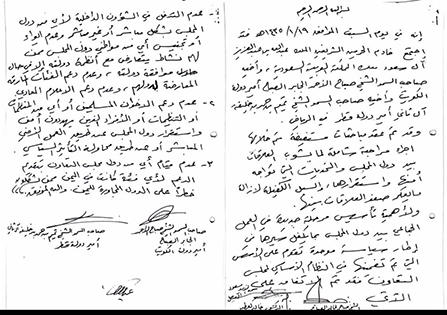 بسم الله الرحمن الرحيم
إنه في يوم السبت الموافق ١٤٣٥/١/١٩هـ فقد
اجتمع خادم الحرمين الشريفين الملك عبدالله بن عبدالعزيز
آل سعود ملك المملكة العربية السعودية، وأخيه
صاحب السمو الشيخ صباح الأحمد الجابر الصباح أمير دولة
الكويت وأخيه صاحب السمو الشيخ تميم بن حمد بن خليفة
آل ثاني أمير دولة قطر في الرياض.
وقد تم عقد مباحثات مستفيضة تم خلالها
إجراء مراجعة شاملة لما يشوب العلاقات
بين دول المجلس والتحديات التي تواجه
أمنها واستقرارها، والسبل الكفيلة لإزالة
ما يعكر صفو العلاقات بينها.
ولأهمية تأسيس مرحلة جديدة في العمل
الجماعي بين دول المجلس بما يكفل سيرها في
إطار سياسة موحدة تقوم على الأسس
التي تم تضمينها في النظام الأساسي لمجلس
التعاون فقد تم
الآتي
عدم التدخل في الشؤون الداخلية لأي من دول
المجلس بشكل مباشر أو غير مباشر وعدم إيواء
أو تجنيس أي من مواطني دول المجلس ممن
لهم نشاط يتعارض مع أنظمة دولته إلا في حال
موافقة دولته، وعدم دعم الفئات المارقة
المعارضة لدولهم، وعدم دعم الإعلام المعادي
٢- عدم دعم الإخوان المسلمين أو أي من المنظمات
أو التنظيمات أو الأفراد الذين يهددون أمن
واستقرار دول المجلس عن طريق العمل الأمني
المباشر أو عن طريق محاولة التأثير السياسي
٣- عدم قيام أي من دول مجلس التعاون بتقديم
الدعم لأي فئة كانت في اليمن ممن يشكلون
خطراً على الدول المجاورة لليمن. والله الموفق
صاحب السمو الشيخ صباح الأحمد
الجابر الصباح
أمير دولة الكويت
صاحب السمو الشيخ تميم بن حمد بن خليفة آل ثاني
أمير دولة قطر